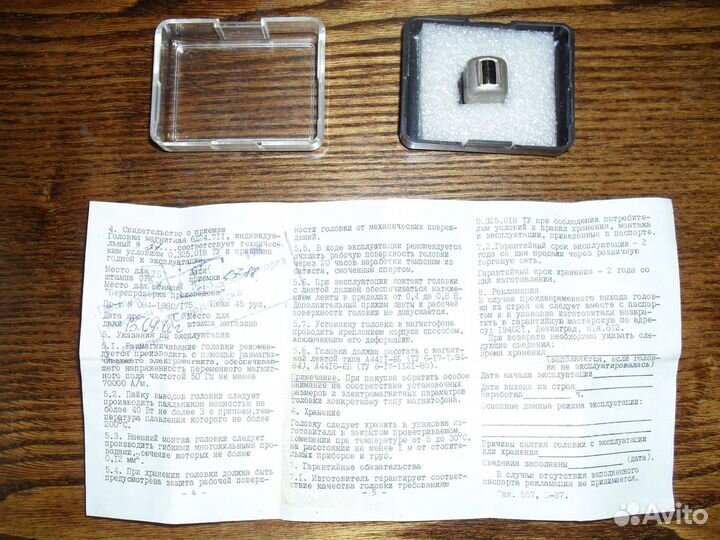 4. Свидетельство о приемке
Головка магнитная 6Д24.7II, индивидуаль-
ный № ... соответствует техничес-
ким условиям 0.325.018 ТУ и признана
годной к эксплуатации.
Место для Дата
штампа ОТК приемки
Место для штампа
"Перепроверка произведена"
Пр-т № 084-1980/175 Цена 45 руб.
Дата про- Место для
дажи штампа магазина
5. Указания по эксплуатации
5.1. Размагничивание головки рекомен-
дуется производить с помощью размагни-
чивающего электромагнита, обеспечи-
вающего напряженность переменного магнит-
ного поля частотой 50 Гц не менее
70000 А/м.
5.2. Пайку выводов головки следует
производить паяльником мощностью не
более 40 Вт не более 3 с припоем, тем-
пература плавления которого не более
200°С.
5.3. Внешний монтаж головки следует
производить гибкими многожильными про-
водами, сечение которых не более
0,12 мм².
5.4. При хранении головки должна быть
предусмотрена защита рабочей поверх-
- 4 -
ности головки от механических повреж-
дений.
5.5. В ходе эксплуатации рекомендуется
очищать рабочую поверхность головки
через 20 часов наработки тампоном из
батиста, смоченным спиртом.
5.6. При эксплуатации контакт головки
с лентой должен обеспечиваться натяже-
нием ленты в пределах от 0,4 до 0,8 Н.
Дополнительный прижим ленты к рабочей
поверхности головки не допускается.
5.7. Установку головки в магнитофоне
проводить креплением корпуса способом,
исключающим его деформацию.
5.8. Головка должна работать с магнит-
ной лентой типа А4416-6Б (ТУ 6-17-1194-
84), А4416-6Б (ТУ 6-17-1121-80).
Примечание. При покупке обратить особое
внимание на соответствие установочных
размеров и электромагнитных параметров
головки конкретному типу магнитофона.
6. Хранение
Головку следует хранить в упаковке из-
готовителя в закрытом проветриваемом
помещении при температуре от 5 до 30°С,
на расстоянии не менее 1 м от отопитель-
ных приборов и труб.
7. Гарантийные обязательства
7.1. Изготовитель гарантирует соответ-
ствие качества головки требованиям
- 5 -
0.325.018 ТУ при соблюдении потребите-
лем условий и правил хранения, монтажа
и эксплуатации, приведенных в паспорте.
7.2. Гарантийный срок эксплуатации - 2
года со дня продажи через розничную
торговую сеть.
Гарантийный срок хранения - 2 года со
дня изготовления.
8. Рекламации
В случае преждевременного выхода голов-
ки из строя ее следует вместе с паспор-
том и в упаковке изготовителя возвра-
тить в гарантийную мастерскую по адре-
су: 194021, Ленинград, а.я.612.
При возврате необходимо указать сле-
дующие сведения:
Время хранения
(заполняется, если голов-
ка не эксплуатировалась)
Дата начала эксплуатации
Дата выхода из строя
Наработка ч.
Основные данные режима эксплуатации:
Причины снятия головки с эксплуатации
или хранения
Сведения заполнены (дата).
В случае отсутствия заполненного
паспорта рекламация не принимается.
Зак. 567, -87.
Avito